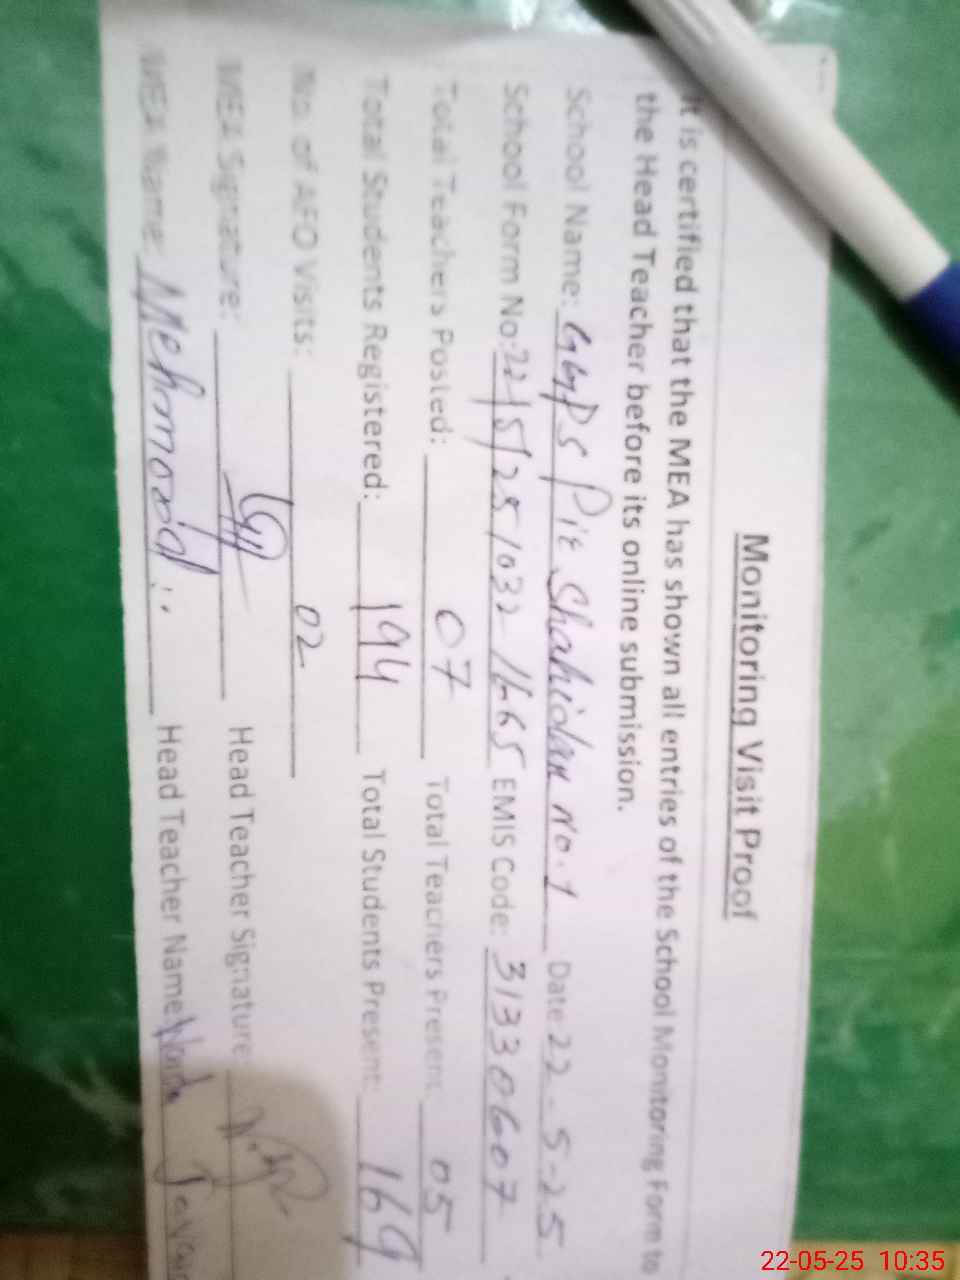 Monitoring Visit Proof
It is certified that the MEA has shown all entries of the School Monitoring Form to
the Head Teacher before its online submission.
School Name: GGPS Pir Shahidan No.1 Date 22-5-25
School Form No: 22/5/25/032/1665 EMIS Code: 31330607
Total Teachers Posted: 07 Total Teachers Present: 05
Total Students Registered: 194 Total Students Present: 169
No. of AEO Visits: 02
MEA Signature: Head Teacher Signature:
MEA Name: Mehmood Head Teacher Name:
22-05-25 10:35